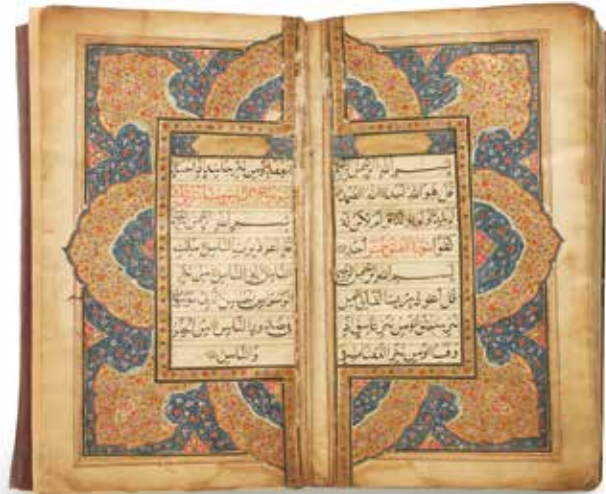 بسم الله الرحمن الرحيم
قل هو الله احد الله الصمد لم
يلد ولم يولد ولم يكن له
كفوا احد
بسم الله الرحمن الرحيم
قل أعوذ برب الفلق من
شر ما خلق ومن شر غاسق اذا
وقب ومن شر النفاثات في
العقد ومن شر حاسد اذا حسد
بسم الله الرحمن الرحيم
قل اعوذ برب الناس ملك
الناس اله الناس من شر
الوسواس الخناس الذي يوسوس
في صدور الناس من الجنة
و الناس